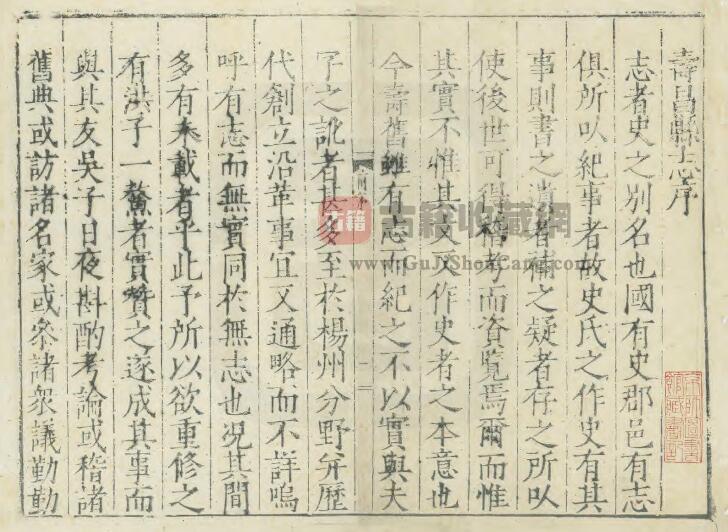 壽昌縣志序
志者史之別名也國有史郡邑有志
俱所以紀事者故史氏之作史有其
事則書之遺者補之疑者存之所以
使後世可得稽考而資覽焉爾而惟
其實不惟其文又作史者之本意也
今壽舊雖有志而紀之不以實與夫
字之訛者甚多至於楊州分野弁歷
代創立沿革事宜又通略而不詳嗚
呼有志而無實同於無志也況其間
多有未載者乎此予所以欲重修之
有洪子一鰲者實贊之遂成其事而
與其友吳子日夜斟酌考論或稽諸
舊典或訪諸名家或叅諸衆議勤勤
古籍 古籍收藏網
www.GuJiShouCang.com